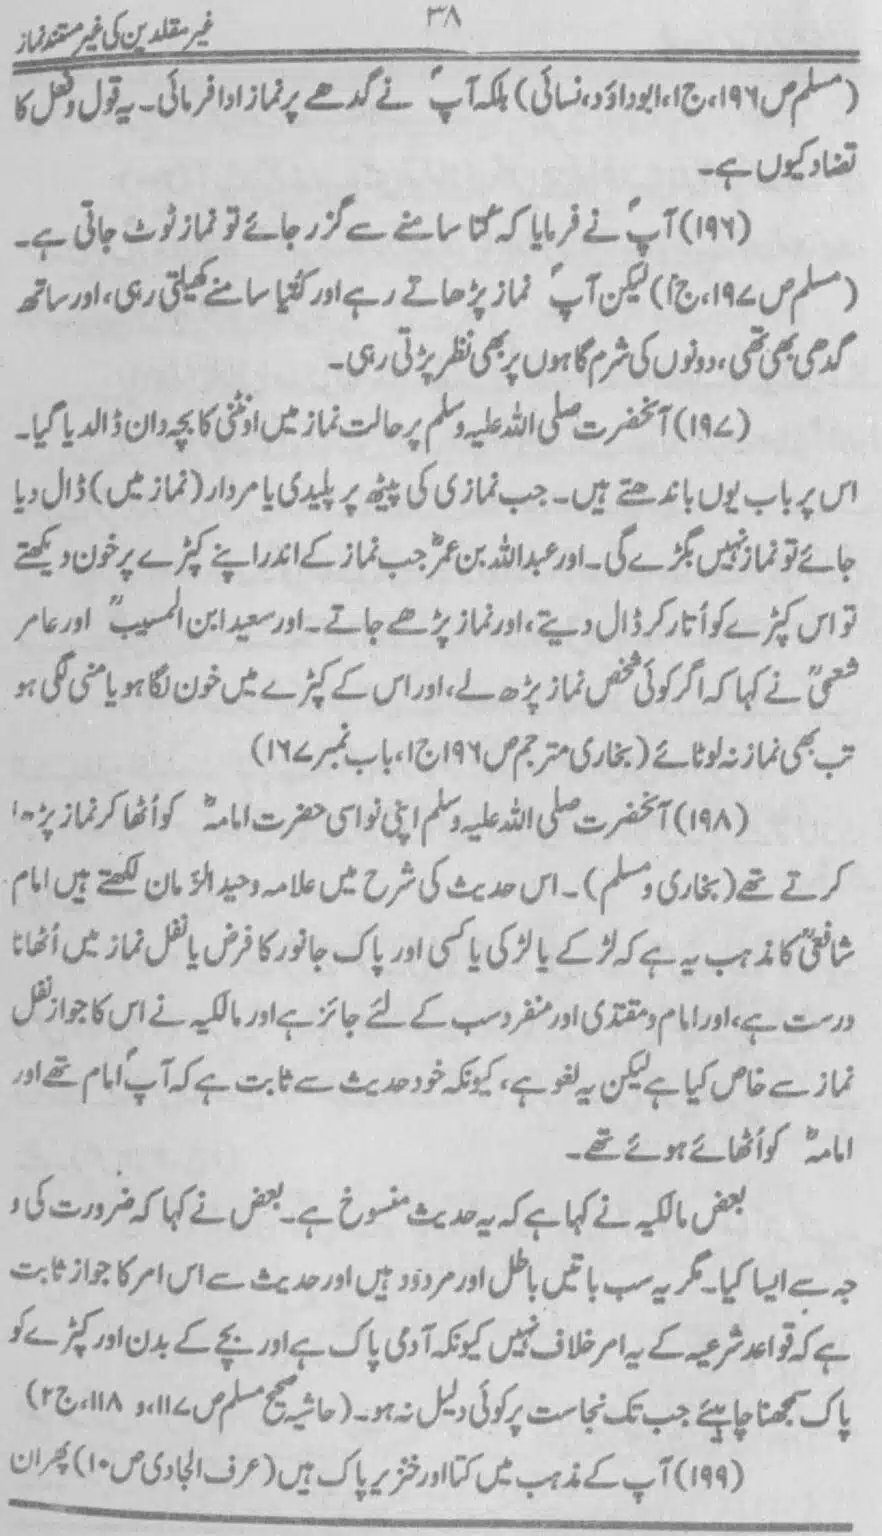 ۳۸
غیر مقلدین کی غیر مستند نماز
(مسلم ص ۱۹۶، ج ا، ابوداؤد، نسائی) بلکہ آپؐ نے گدھے پر نماز ادا فرمائی۔ یہ قول و فعل کا
تضاد کیوں ہے۔
(۱۹۶) آپؐ نے فرمایا کہ کتا سامنے سے گزر جائے تو نماز ٹوٹ جاتی ہے۔
(مسلم ص ۱۹۷، ج ا) لیکن آپؐ نماز پڑھاتے رہے اور کتیا سامنے کھیلتی رہی، اور ساتھ
گدھی بھی تھی، دونوں کی شرم گاہوں پر بھی نظر پڑتی رہی۔
(۱۹۷) آنحضرت صلی اللہ علیہ وسلم پر حالت نماز میں اونٹنی کا بچہ دان ڈالدیا گیا۔
اس پر باب یوں باندھتے ہیں۔ جب نمازی کی پیٹھ پر پلیدی یا مردار (نماز میں) ڈال دیا
جائے تو نماز نہیں بگڑے گی۔ اور عبداللہ بن عمرؓ جب نماز کے اندر اپنے کپڑے پر خون دیکھتے
تو اس کپڑے کو اُتار کر ڈال دیتے، اور نماز پڑھے جاتے۔ اور سعید ابن المسیبؒ اور عامر
شعبیؒ نے کہا کہ اگر کوئی شخص نماز پڑھ لے، اور اس کے کپڑے میں خون لگا ہو یا منی لگی ہو
تب بھی نماز نہ لوٹائے (بخاری مترجم ص ۱۹۶ ج ۱، باب نمبر ۱۶۷)
(۱۹۸) آنحضرت صلی اللہ علیہ وسلم اپنی نواسی حضرت امامہؓ کو اُٹھا کر نماز پڑھا
کرتے تھے (بخاری و مسلم)۔ اس حدیث کی شرح میں علامہ وحید الزمان لکھتے ہیں امام
شافعیؒ کا مذہب یہ ہے کہ لڑکے یا لڑکی یا کسی اور پاک جانور کا فرض یا نفل نماز میں اُٹھانا
درست ہے، اور امام و مقتدی اور منفرد سب کے لئے جائز ہے اور مالکیہ نے اس کا جواز نفل
نماز سے خاص کیا ہے لیکن یہ لغو ہے، کیونکہ خود حدیث سے ثابت ہے کہ آپؐ امام تھے اور
امامہؓ کو اُٹھائے ہوئے تھے۔
بعض مالکیہ نے کہا ہے کہ یہ حدیث منسوخ ہے۔ بعض نے کہا کہ ضرورت کی و
جہ سے ایسا کیا۔ مگر یہ سب باتیں باطل اور مردود ہیں اور حدیث سے اس امر کا جواز ثابت
ہے کہ قواعد شرعیہ کے یہ امر خلاف نہیں کیونکہ آدمی پاک ہے اور بچے کے بدن اور کپڑے کو
پاک سمجھنا چاہیئے جب تک نجاست پر کوئی دلیل نہ ہو۔ (حاشیہ صحیح مسلم ص ۱۱۷، و ۱۱۸، ج ۲)
(۱۹۹) آپ کے مذہب میں کتا اور خنزیر پاک ہیں (عرف الجادی ص ۱۰) پھر ان